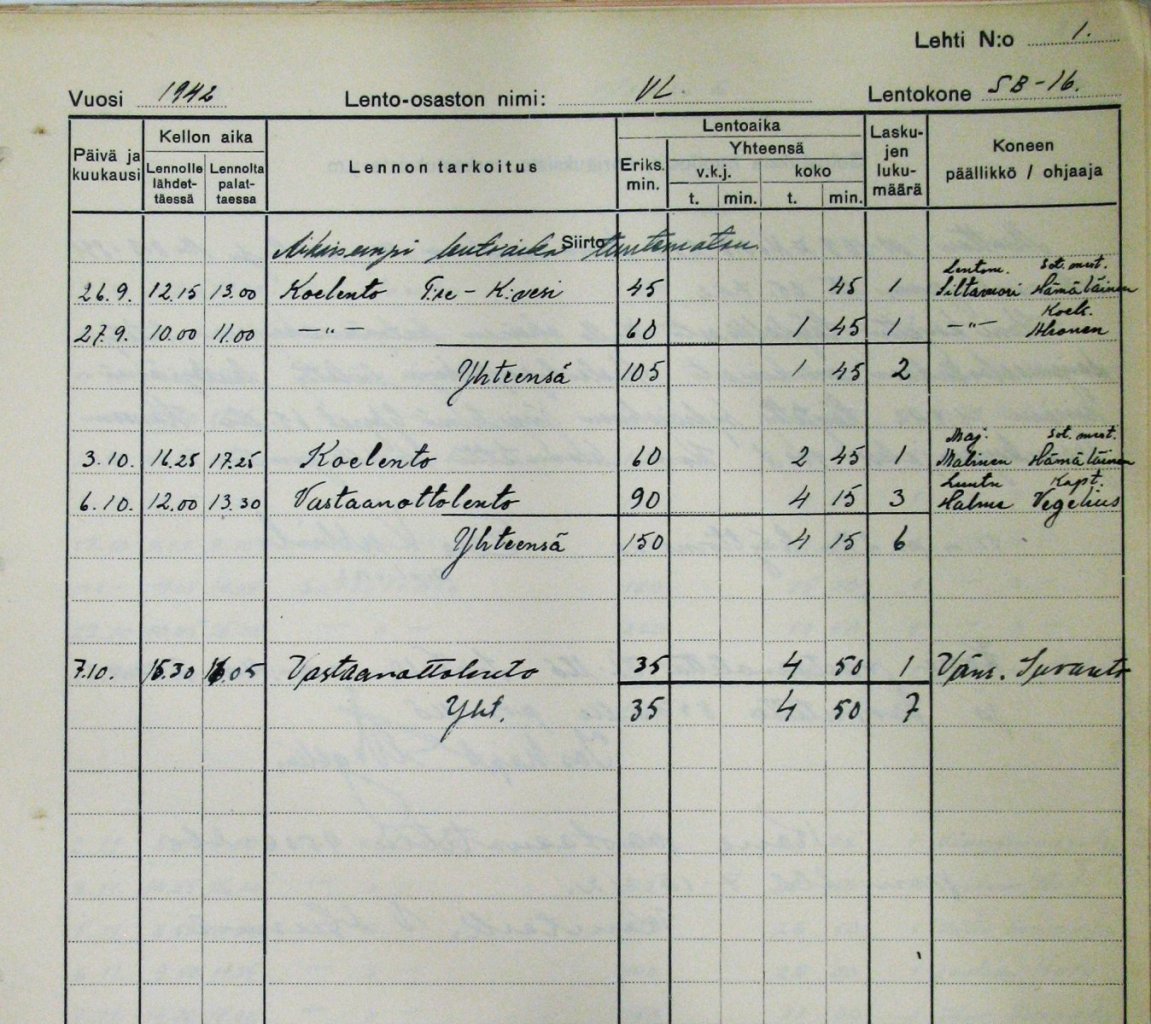 Lehti N:o 1.
Vuosi 1942 Lento-osaston nimi: VL. Lentokone SB-16.
Päivä ja kuukausi Kellon aika Lennolle lähdet-täessä Lennolta palat-taessa Lennon tarkoitus Lentoaika Eriks. min. Yhteensä v.k.j. t. min. koko t. min. Lasku-jen luku-määrä Koneen päällikkö / ohjaaja
Aikaisempi lentoaika Siirto tuntematon
Lentom. Sot. mest.
26.9. 12.15 13.00 Koelento Tre - K:vesi 45 45 1 Siltavuori Hämäläinen
Koels.
27.9. 10.00 11.00 —"— 60 1 45 1 —"— Ahonen
Yhteensä 105 1 45 2
Maj. Sot. mest.
3.10. 16.25 17.25 Koelento 60 2 45 1 Malinen Hämäläinen
Luutn Kapt.
6.10. 12.00 13.30 Vastaanottolento 90 4 15 3 Halme Vegelius
Yhteensä 150 4 15 6
7.10. 15.30 16.05 Vastaanottolento 35 4 50 1 Vänr.
Yht. 35 4 50 7